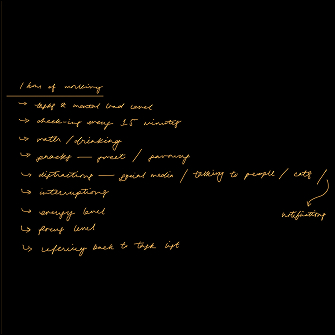 1 hour of working
→ task & mental load level
→ check-ins every 15 minutes
→ water / drinking
→ snacks — sweet / savoury
→ distractions — social media / talking to people / cats /
notifications
→ interruptions
→ energy level
→ focus level
→ referring back to task list